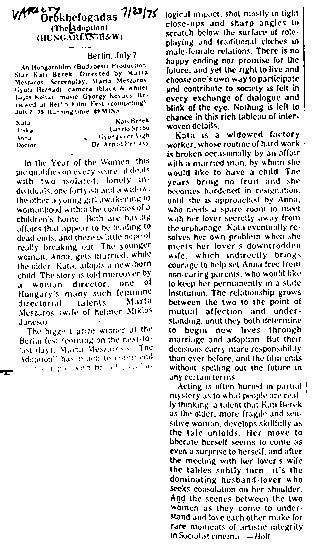 VARIETY 7/23/75
Orokbefogadas
(The Adoption)
(HUNGARIAN-B&W)
Berlin, July 7
An Hungarofilm (Budapest) Production.
Star Kati Berek. Directed by Marta
Meszaros. Screenplay, Marta Meszaros,
Gyula Hernadi; camera (black & white),
Lajos Koltai; music, Gyorgy Kovacs. Re-
viewed at Berlin Film Fest (competing)
July 7, '75. Running time: 89 MINS.
Kata Kati Berek
Anna
Doctor
In the Year of the Woman, this
pic qualifies on every score. It deals
with two isolated, lonely in-
dividuals, one forty-ish and a widow,
the other a young girl awakening to
womanhood within the confines of a
children's home. Both are having
affairs that appear to be leading to
dead ends, and there is little hope of
really breaking out. The younger
woman, Anna, gets married, while
the elder, Kata, adopts a new-born
child. The story is told moreover by
a woman director, one of
Hungary's many such feminine
directorial talents, Marta
Meszaros (wife of helmer Miklos
Jancso).
The biggest prize winner at the
Berlin fest (coming on the next-to-
last day), Marta Meszaros' "The
Adoption" has
logical impact, shot mostly in tight
close-ups and sharp angles to
scratch below the surface of role-
playing and traditional cliches of
male-female relations. There is no
happy ending nor promise for the
future, and yet the right to live and
choose one's own way to participate
and contribute to society is felt in
every exchange of dialogue and
blink of the eye. Nothing is left to
chance in this rich tableau of inter-
woven details.
Kata is a widowed factory
worker, whose routine of hard work
is broken occasionally by an affair
with a married man, by whom she
would like to have a child. The
years bring no fruit and she
becomes hardened in resignation,
until she is approached by Anna,
who needs a spare room to meet
with her lover secretly away from
the orphanage. Kata eventually re-
solves her own problem when she
meets her lover's downtrodden
wife, which indirectly brings
courage to help set Anna free from
non-caring parents, who would like
to keep her permanently in a state
institution. The relationship grows
between the two to the point of
mutual affection and under-
standing, until they both determine
to begin new lives through
marriage and adoption. But their
decisions carry more responsibility
than ever before, and the film ends
without spelling out the future in
any certain terms.
Acting is often buried in partial
mystery as to what people are real-
ly thinking, a talent that Kati Berek
as the older, more fragile and sen-
sitive woman, develops skillfully as
the tale unfolds. Her move to
liberate herself seems to come as
even a surprise to herself, and after
the meeting with her lover's wife
the tables subtly turn: it's the
dominating husband-lover who
seeks consolation on her shoulder.
And the scenes between the two
women as they come to under-
stand and love each other make for
rare moments of artistic integrity
in Socialist cinema. —Holl.